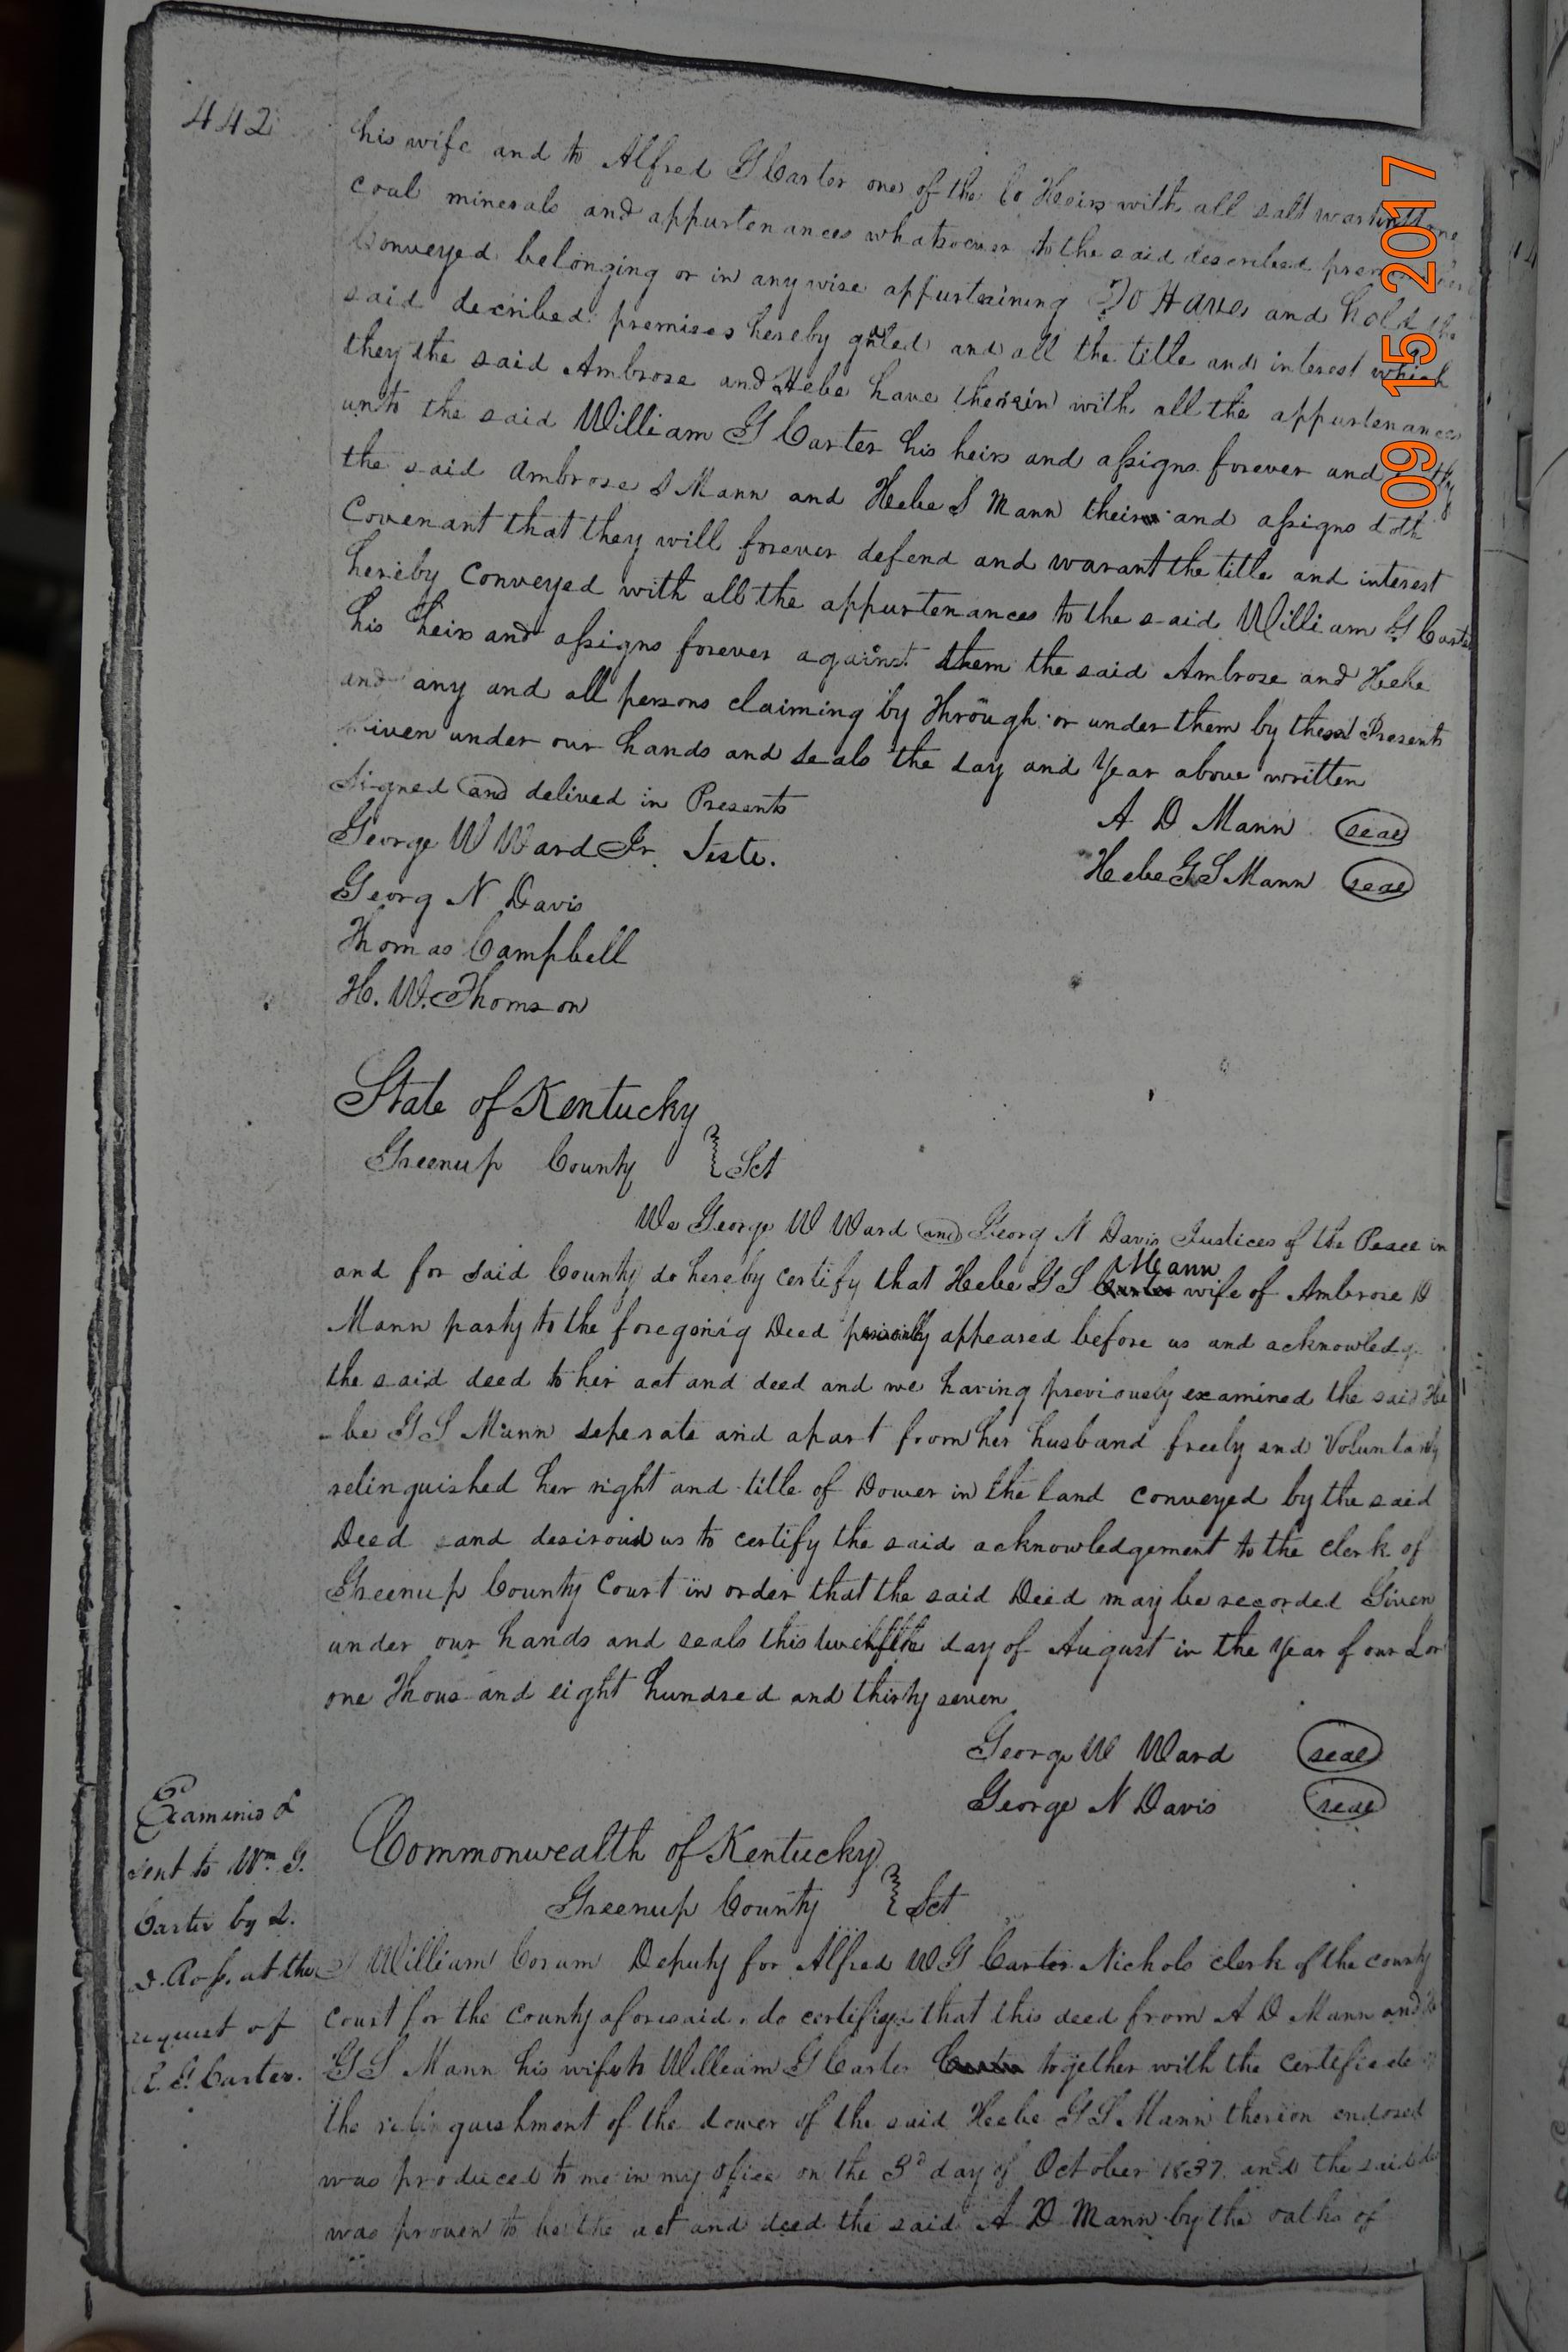 442
his wife and to Alfred G Carter one of the Co Heirs with all salt
coal minerals and appurtenances whatsoever to the said described
Conveyed belonging or in any wise appurtaining To Have and hold the
said decribed premises hereby gnted and all the title and interest which
they the said Ambrose and Hebe have therein with all the appurtenances
unto the said William G Carter his heirs and assigns forever and they
the said Ambrose D Mann and Hebe S Mann their and assigns doth
Covenant that they will forever defend and warant the title and interest
hereby conveyed with all the appurtenances to the said William G Carter
his heirs and assigns forever against them the said Ambrose and Hebe
and any and all persons claiming by through or under them by these Presents
Given under our hands and seals the day and Year above written
Signed and delived in Presents
A D Mann seal
George W Ward Jr. Teste.
Hebe G S Mann seal
Georg N Davis
Thomas Campbell
H. W. Thomson
State of Kentucky
Greenup County } Sct
We George W Ward and Georg N Davis Justices of the Peace in
and for said County do hereby certify that Hebe G S Carter Mann wife of Ambrose D
Mann party to the foregoing Deed appeared before us and acknowledg
the said deed to her act and deed and we having previously examined the said He
-be G S Mann seperate and apart from her husband freely and Voluntarily
relinquished her right and title of Dower in the land conveyed by the said
Deed and desiroud us to certify the said acknowledgement to the clerk of
Greenup County Court in order that the said Deed may be recorded Given
under our hands and seals this twelfth day of August in the Year of our Lor
one Thousand eight hundred and thirty seven
George W Ward seal
George N Davis seal
Examined &
sent to Wm G.
Carter by
at the
request of
Carter.
Commonwealth of Kentucky
Greenup County } Sct
I William Corum Deputy for Alfred W G Carter Nichols clerk of the county
court for the county aforesaid, do certify that this deed from A D Mann and
G S Mann his wife to William G Carter Carter together with the certificate
the relinquishment of the dower of the said Hebe G S Mann thereon endosed
was produced to me in my office on the 3d day of October 1837. and the said
was proven to be the act and deed the said A D Mann by the oaths of
09 15 2017